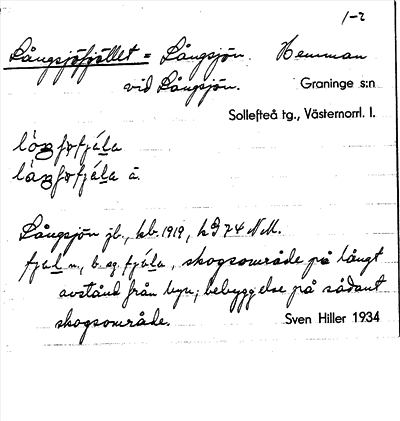 1-2
Långsjöfjället = Långsjön. Hemman
vid Långsjön. Graninge s:n
Sollefteå tg., Västernorrl. l.
Långsjön jb., kb. 1919, k
fjäl n., b. sg. fjäla, skogsområde på långt
avstånd från byn; bebyggelse på sådant
skogsområde.
Sven Hiller 1934